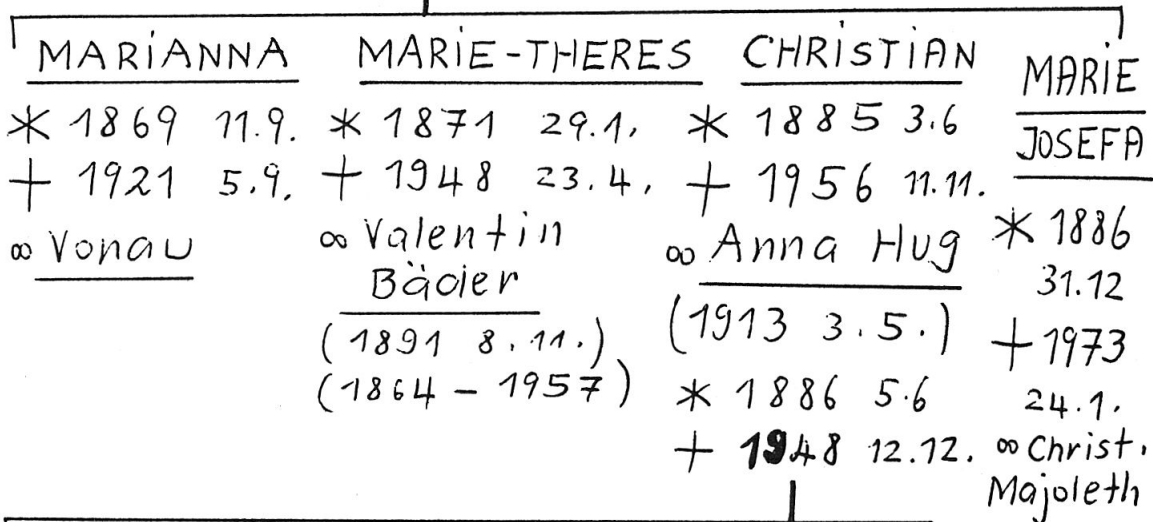 MARIANNA
* 1869 11.9.
+ 1921 5.9.
∞ Vonau
MARIE-THERES
* 1871 29.1.
+ 1948 23.4.
∞ Valentin
Bäder
(1891 8.11.)
(1864 – 1957)
CHRISTIAN
* 1885 3.6
+ 1956 11.11.
∞ Anna Hug
(1913 3.5.)
* 1886 5.6
+ 1948 12.12.
MARIE
JOSEFA
* 1886
31.12
+ 1973
24.1.
∞ Christ.
Majoleth